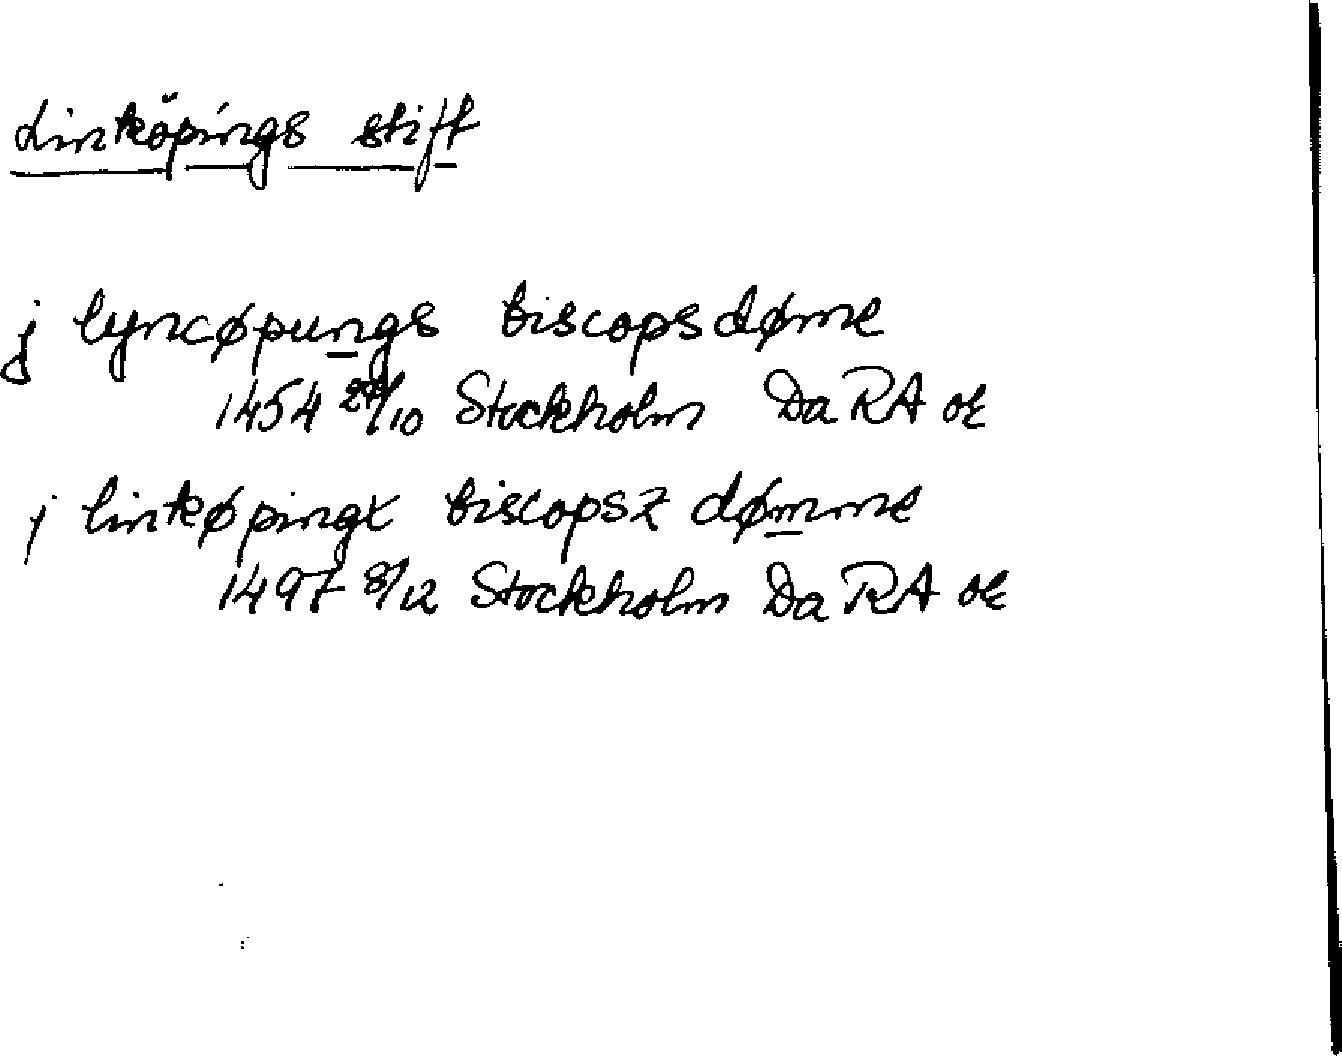 Linköpings stift
j lyncøpungs biscopsdøme
1454 /10 Stockholm Da RA or
j linkøpingx biscopsz dømme
1497 8/12 Stockholm Da RA or